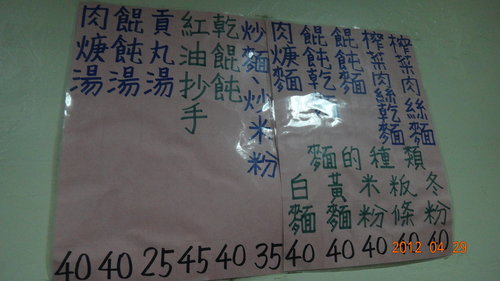 榨菜肉絲麵
榨菜肉絲乾麵
餛飩麵
餛飩乞
肉焿麵
炒麵、炒米粉
乾餛飩
紅油抄手
貢丸湯
餛飩湯
肉焿湯
麵的種類
冬粉
粄條
米粉
黃麵
白麵
40 40 25 45 40 35 40 40 40 40 40
2012 04 29